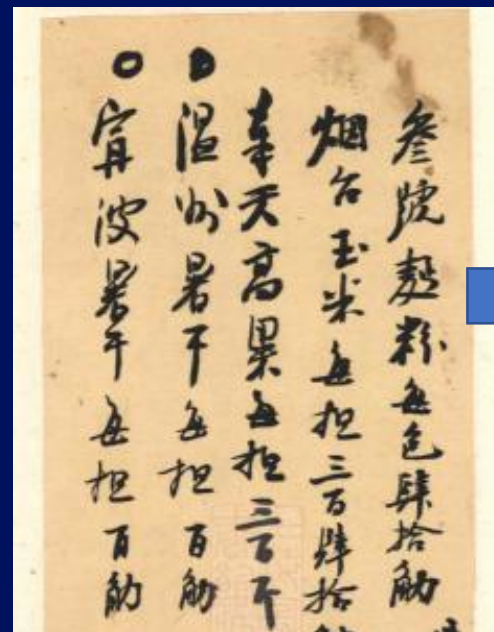 叁號麵粉每包肆拾觔
烟台玉米每担三百肆拾
奉天高粱每担三百斤
温州暑干每担百觔
甯波暑干每担百觔